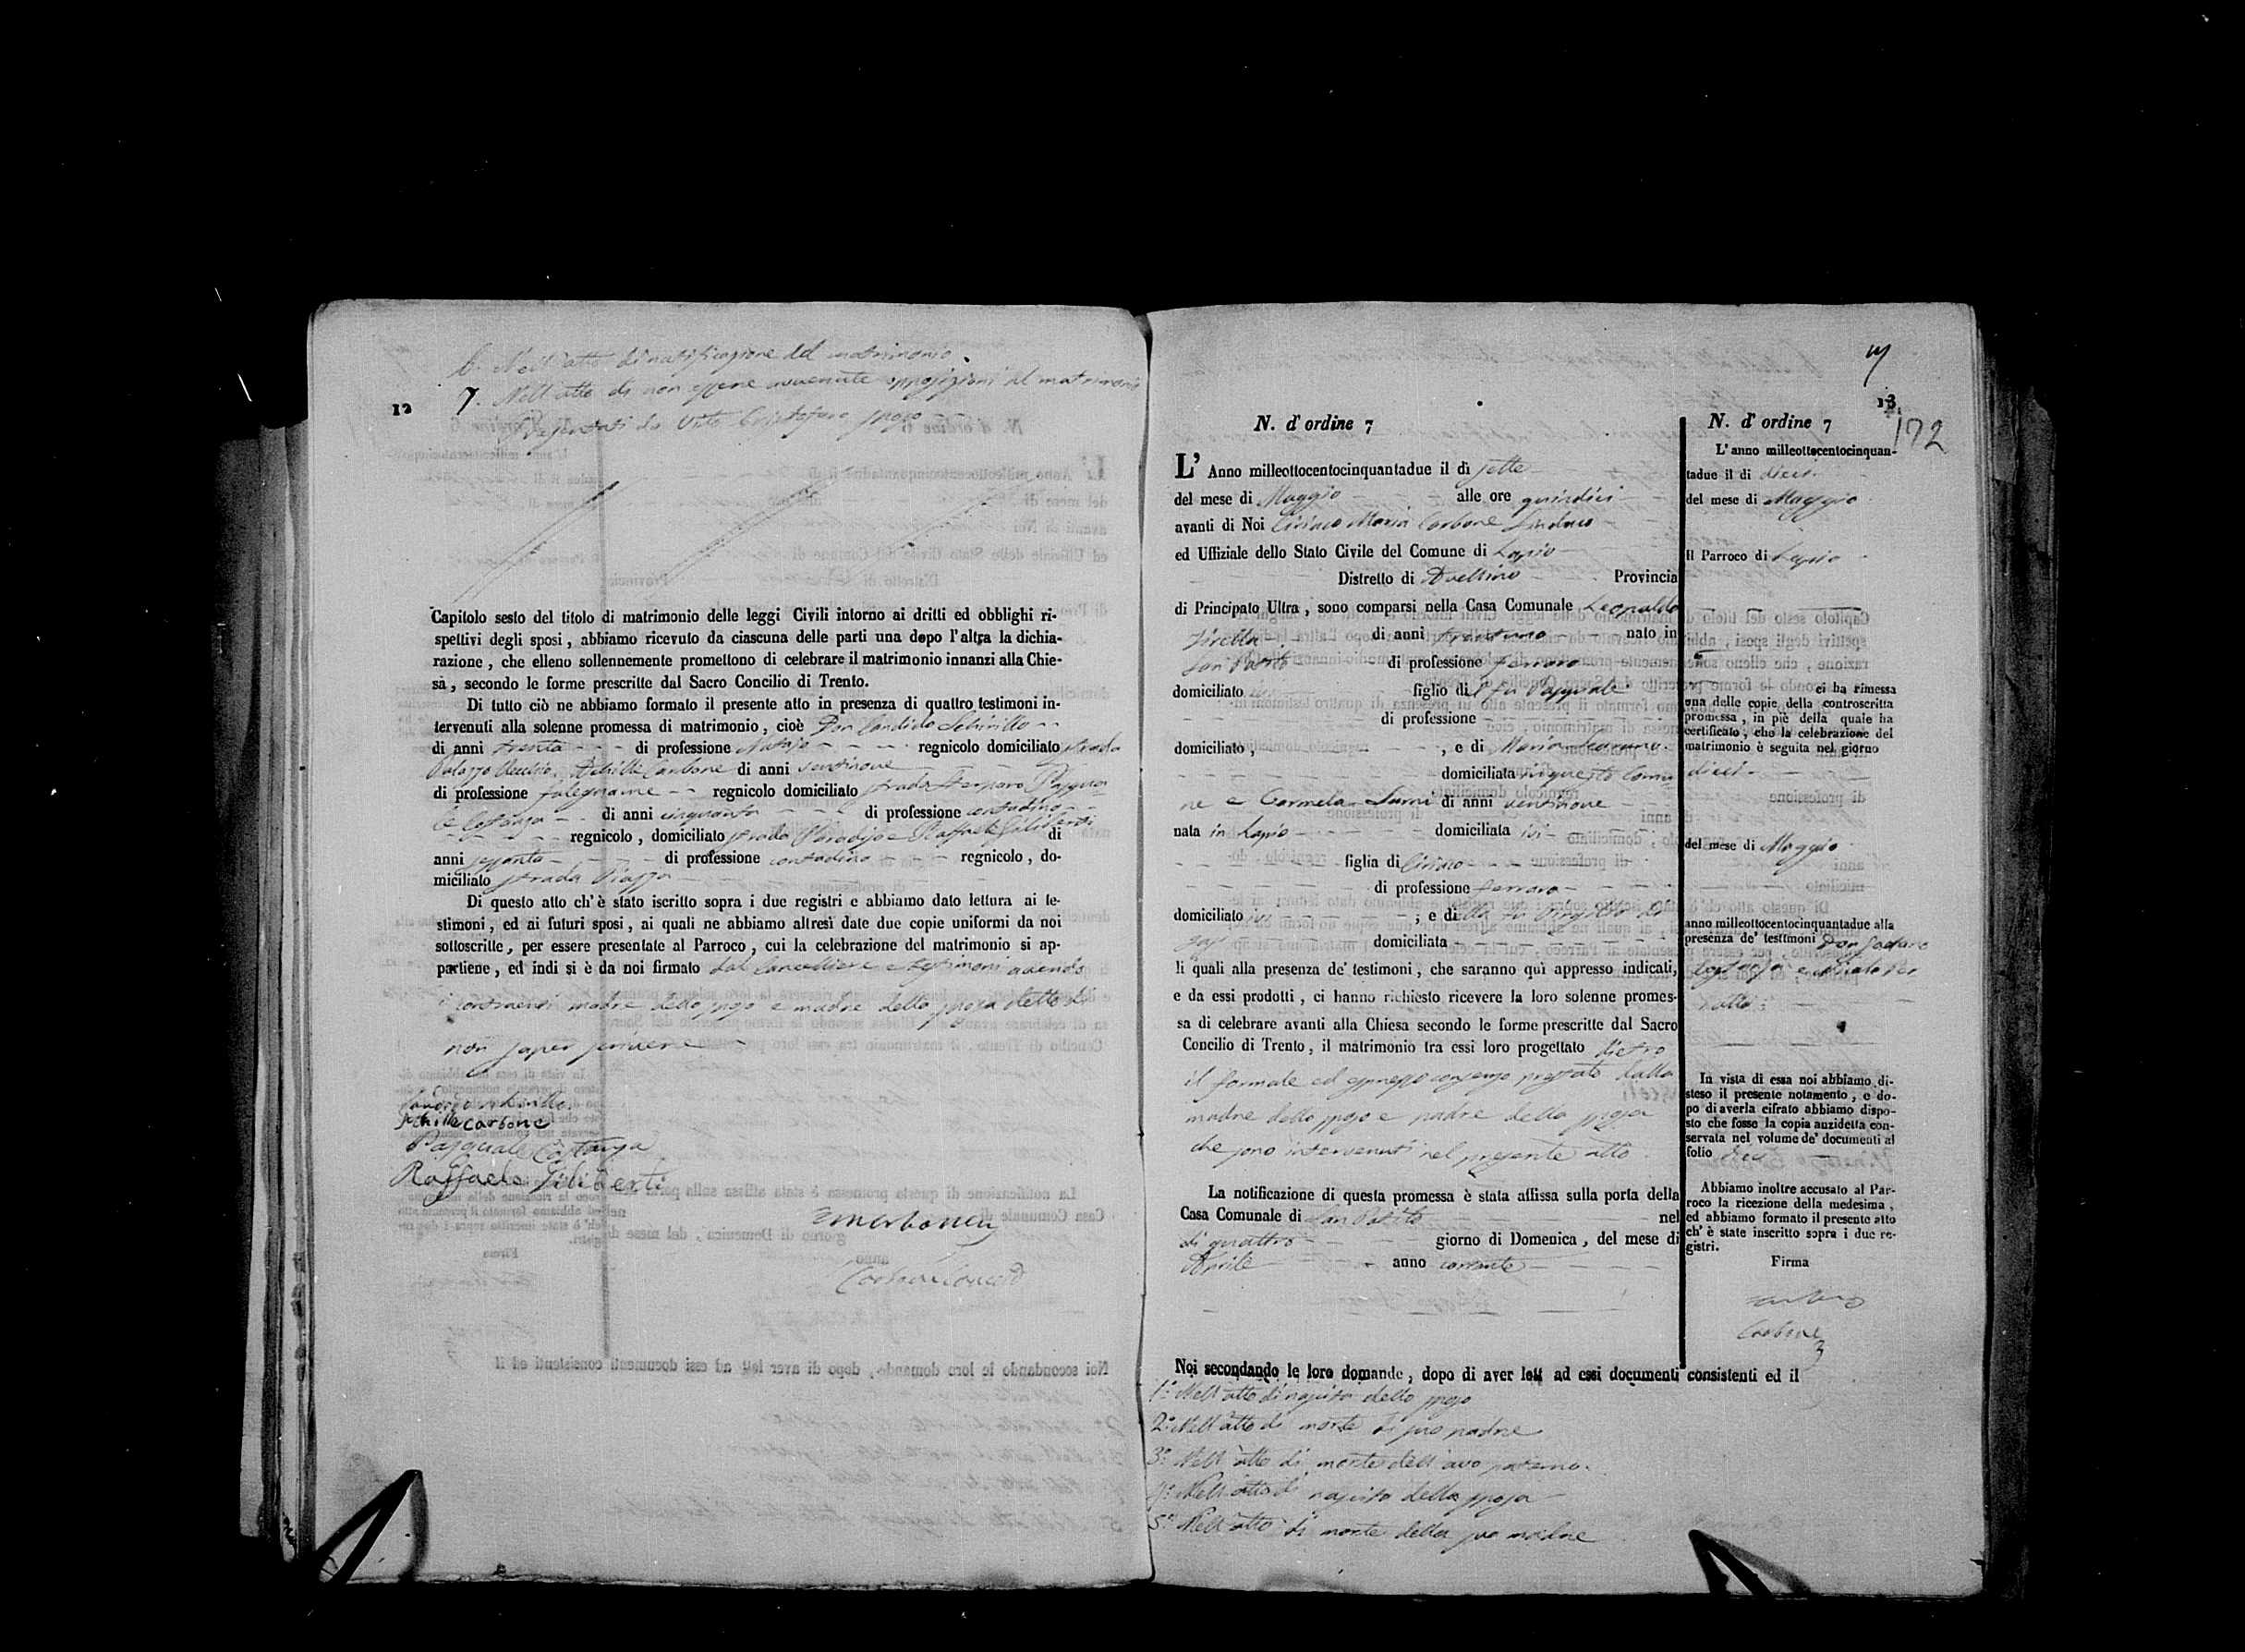 6. Nell'atto di notificazione del matrimonio.
7. Nell'atto di non essere avvenute opposizioni al matrimonio
presentati da Vito Cristofaro sposo
12
Capitolo sesto del titolo di matrimonio delle leggi Civili intorno ai dritti ed obblighi ri-
spettivi degli sposi, abbiamo ricevuto da ciascuna delle parti una dopo l'altra la dichia-
razione, che elleno sollennemente promettono di celebrare il matrimonio innanzi alla Chie-
sa, secondo le forme prescritte dal Sacro Concilio di Trento.
Di tutto ciò ne abbiamo formato il presente atto in presenza di quattro testimoni in-
tervenuti alla solenne promessa di matrimonio, cioè Don Candido Schirillo
di anni trenta di professione Notajo regnicolo domiciliato strada
Palazzo Vecchio, Achille Carbone di anni ventinove
di professione falegname regnicolo domiciliato strada Pasqua
le Costanza di anni cinquanta di professione contadino
regnicolo, domiciliato strada Paradiso e Raffaele Giliberti di
anni sessanta di professione contadino regnicolo, do-
miciliato strada Piazza
Di questo atto ch'è stato iscritto sopra i due registri e abbiamo dato lettura ai te-
stimoni, ed ai futuri sposi, ai quali ne abbiamo altresì date due copie uniformi da noi
sottoscritte, per essere presentate al Parroco, cui la celebrazione del matrimonio si ap-
partiene, ed indi si è da noi firmato dal Cancelliere e testimoni avendo
i contraenti madre dello sposo e madre della sposa detto di
non saper scrivere
Candido Schirillo
Achille Carbone
Pasquale Costanza
Raffaele Giliberti
Carbone
13
172
N. d'ordine 7
L'Anno milleottocentocinquantadue il dì sette
del mese di Maggio alle ore quindici
avanti di Noi Ciriaco Maria Carbone Sindaco
ed Uffiziale dello Stato Civile del Comune di Lapio
Distretto di Avellino Provincia
di Principato Ultra, sono comparsi nella Casa Comunale Leopoldo
Sirella di anni trentuno nato in
San Potito di professione ferraro
domiciliato figlio del fu Pasquale
di professione
domiciliato, , e di Maria
domiciliata in questo Comu
ne e Carmela di anni ventinove
nata in Lapio domiciliata ivi
figlia di Ciriaco
di professione ferraro
domiciliato ivi ; e di
domiciliata
li quali alla presenza de' testimoni, che saranno quì appresso indicati,
e da essi prodotti, ci hanno richiesto ricevere la loro solenne promes-
sa di celebrare avanti alla Chiesa secondo le forme prescritte dal Sacro
Concilio di Trento, il matrimonio tra essi loro progettato dietro
il formale ed espresso consenso prestato dalla
madre dello sposo e padre della sposa
che sono intervenuti nel presente atto
La notificazione di questa promessa è stata affissa sulla porta della
Casa Comunale di San Potito nel
dì quattro giorno di Domenica, del mese di
Aprile anno corrente
Noi secondando le loro domande, dopo di aver lett ad essi documenti consistenti ed il
1º Nell'atto di nascita dello sposo
2º Nell'atto di morte di suo padre
3º Nell'atto di morte dell'avo paterno.
4º Nell'atto di nascita della sposa
5º Nell'atto di morte della sua madre
N. d'ordine 7
L'anno milleottocentocinquan-
tadue il di dieci
del mese di Maggio
Il Parroco di Lapio
ci ha rimessa
una delle copie della controscritta
promessa, in piè della quale ha
certificato, che la celebrazione del
matrimonio è seguita nel giorno
dieci
del mese di Maggio
anno milleottocentocinquantadue alla
presenza de' testimoni Don Gaetano
In vista di essa noi abbiamo di-
steso il presente notamento, e do-
po di averla cifrato abbiamo dispo-
sto che fosse la copia anzidetta con-
servata nel volume de' documenti al
folio dieci
Abbiamo inoltre accusato al Par-
roco la ricezione della medesima,
ed abbiamo formato il presente atto
ch'è state inscritto sopra i due re-
gistri.
Firma
Carbone